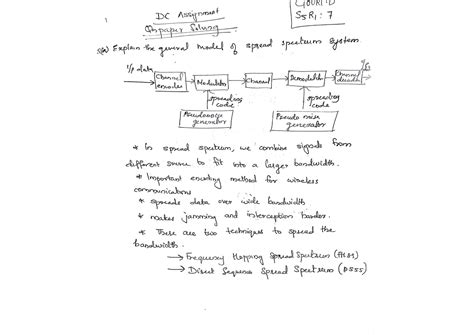 DC Assignment
GOURI D
S5R1: 7
Qnpaper Solving
5(a) Explain the general model of spread spectrum system
I/p data
Channel encoder
Modulator
Channel
Demodulator
Channel decoder
spreading code
spreading code
Pseudonoise generator
Pseudo noise generator
* In spread spectrum, we combine signals from
different source to fit into a larger bandwidth.
* Important encoding method for wireless
communications
* spreads data over wide bandwidth
* makes jamming and interception harder.
* There are two techniques to spread the
bandwidth.
→ Frequency Hopping Spread Spectrum (FHSS)
→ Direct Sequence Spread Spectrum (DSSS)